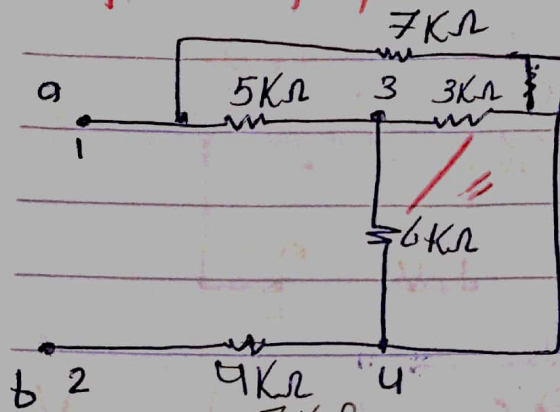 7KΩ
a 5KΩ 3 3KΩ
1
6KΩ
b 2 4KΩ 4